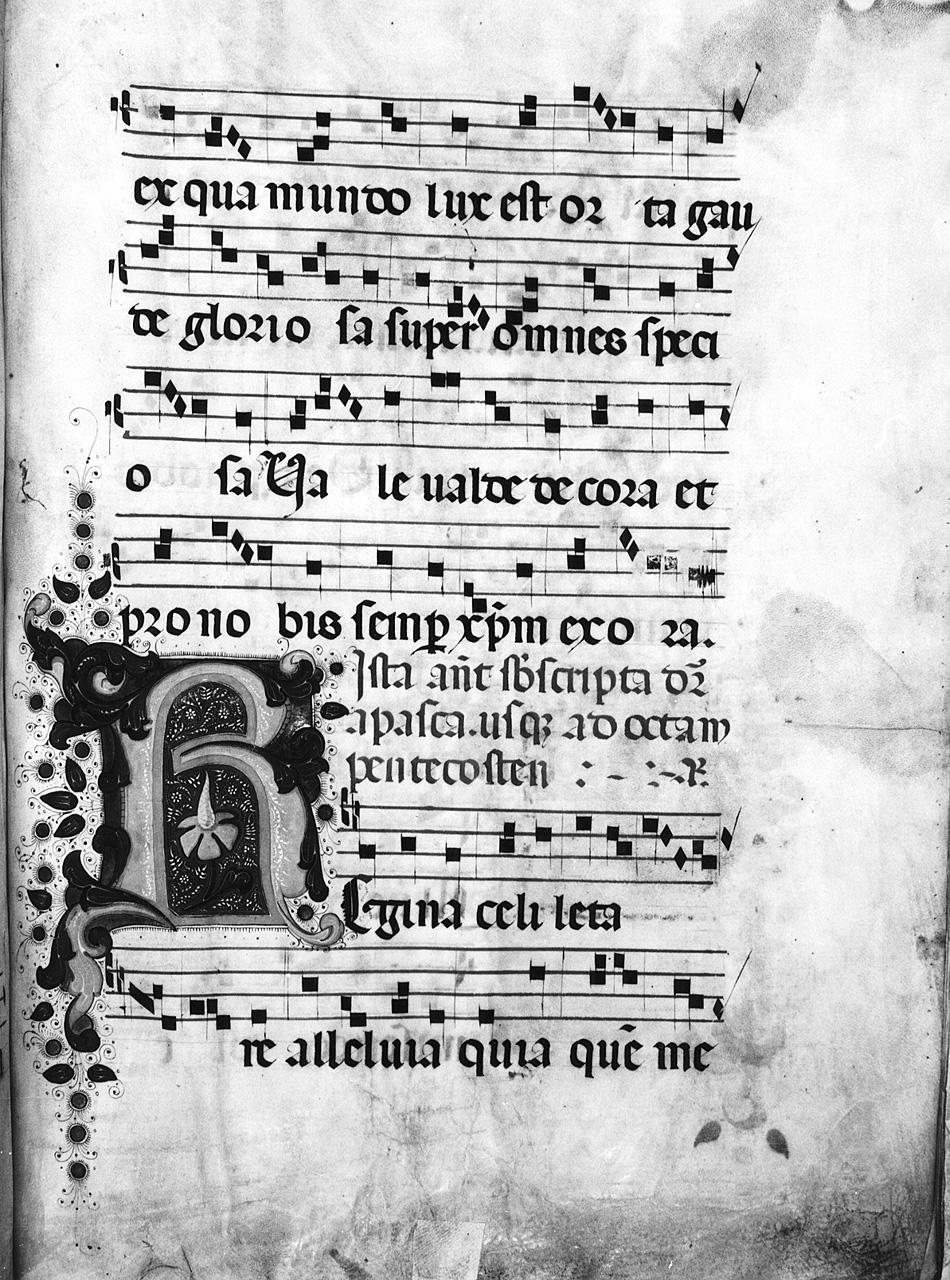 ex qua mundo lux est or ta gau
de glorio sa super omnes speci
o sa Va le valde decora et
pro no bis semꝑ xp̄m exo ra.
Ista an̄t sb̄scripta dr̄
a pasca. usqꝫ ad octam
pentecosten : - : - R
Egina celi leta
re alleluia quia quē me